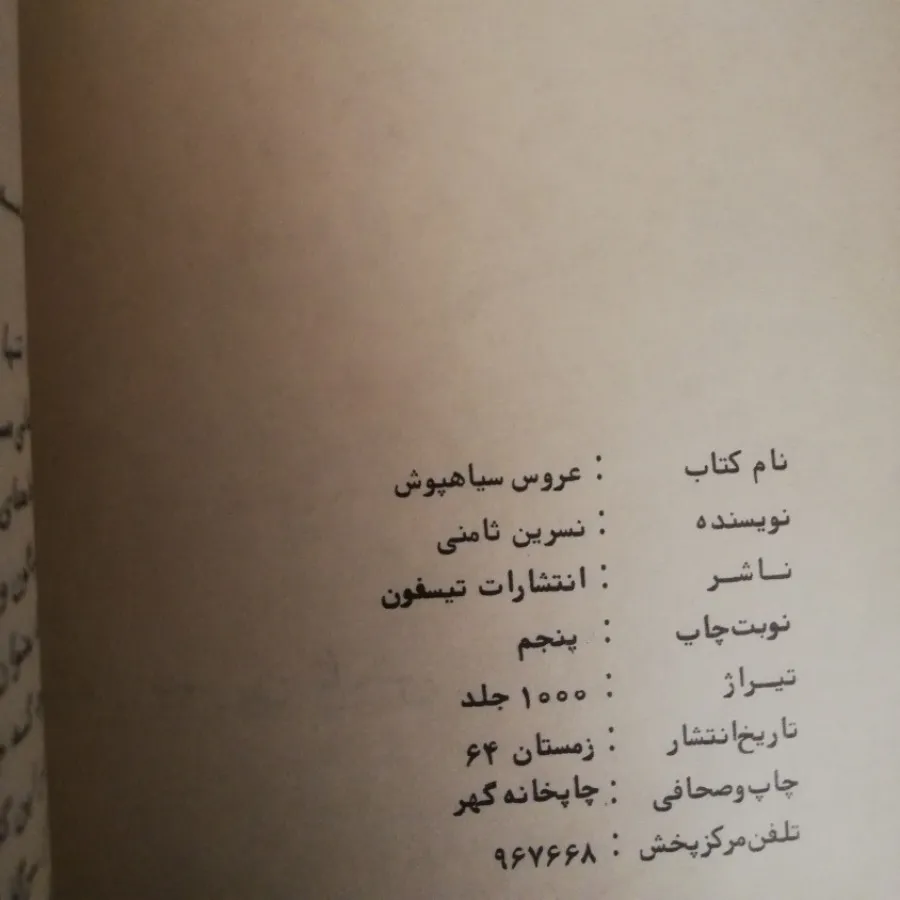 نام کتاب : عروس سیاهپوش
نویسنده : نسرین ثامنی
ناشر : انتشارات تیسفون
نوبت‌چاپ : پنجم
تیراژ : ۱۰۰۰ جلد
تاریخ‌انتشار : زمستان ۶۴
چاپ‌وصحافی : چاپخانه گهر
تلفن‌مرکزپخش : ۹۶۷۶۶۸